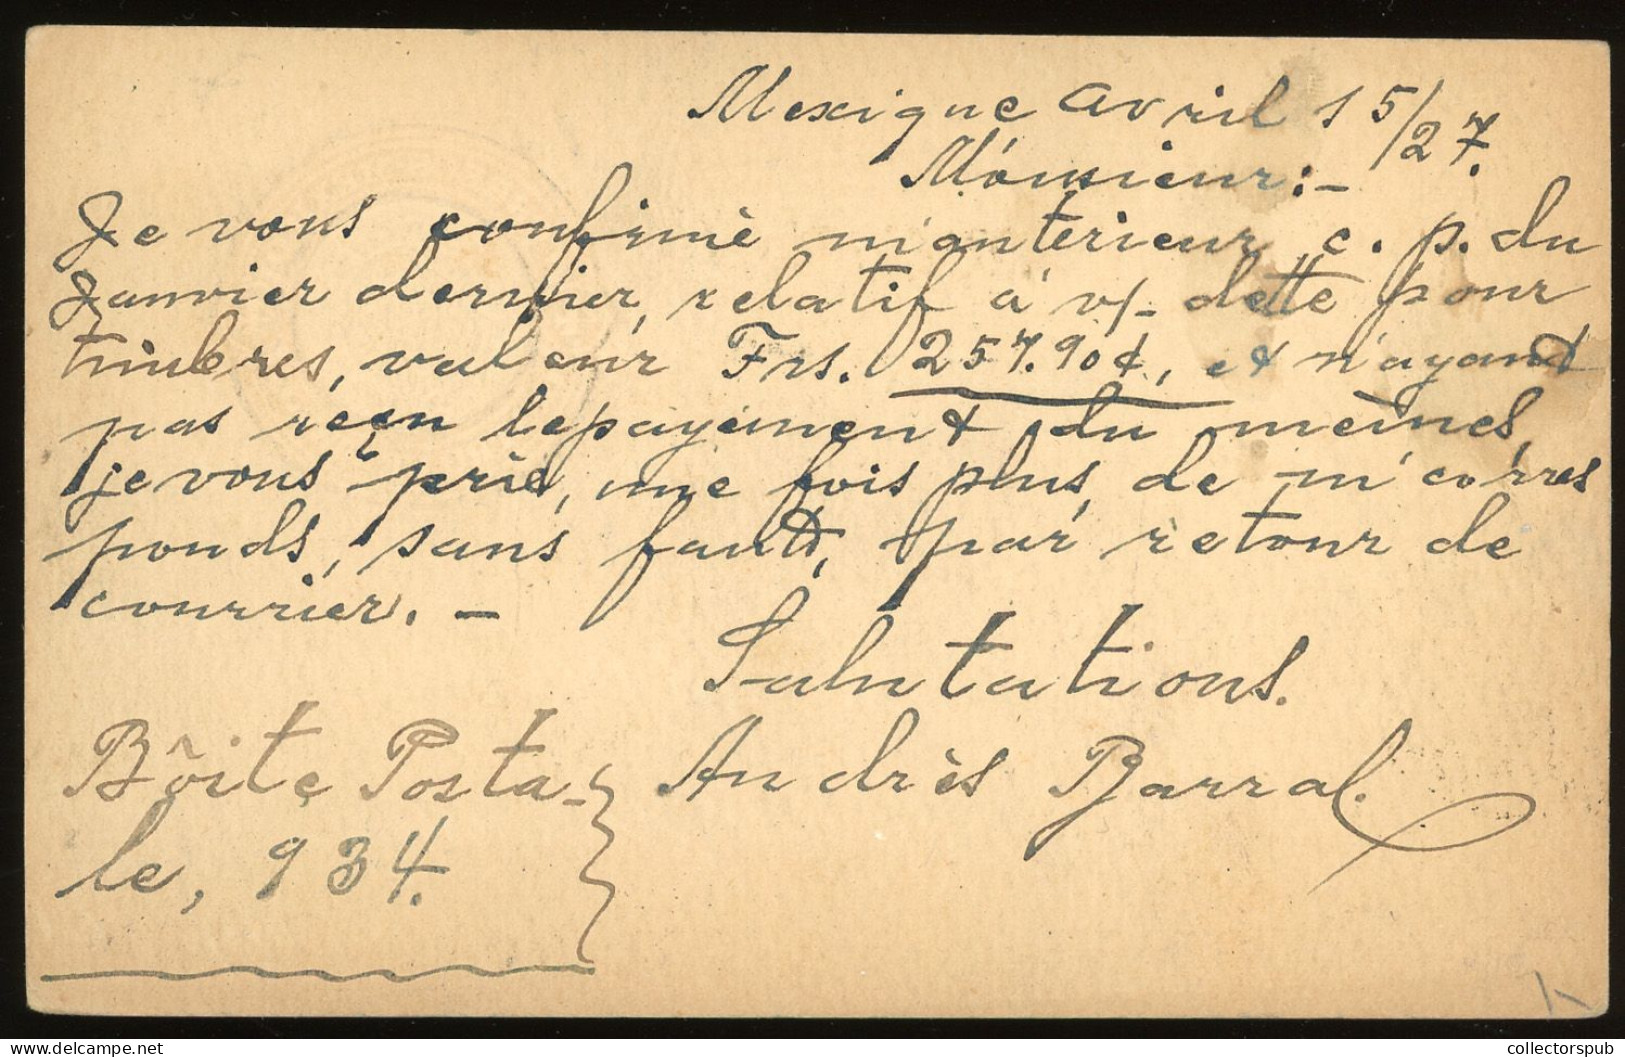 Mexique Avril 15/27.
Mónsieur:-
Je vous confirmè m'antérieur c. p. du
Janvier dernier, relatif á v/- dette pour
timbres, valeur Frs. 257.90¢, et n'ayant
pas reçu le payément du mèmes,
je vous prie, une fois plus, de m'corres
ponds, sans faute, par retour de
courrier. -
Salutations.
Bôite Posta- Andrès Barral.
le, 934.
collectorspub